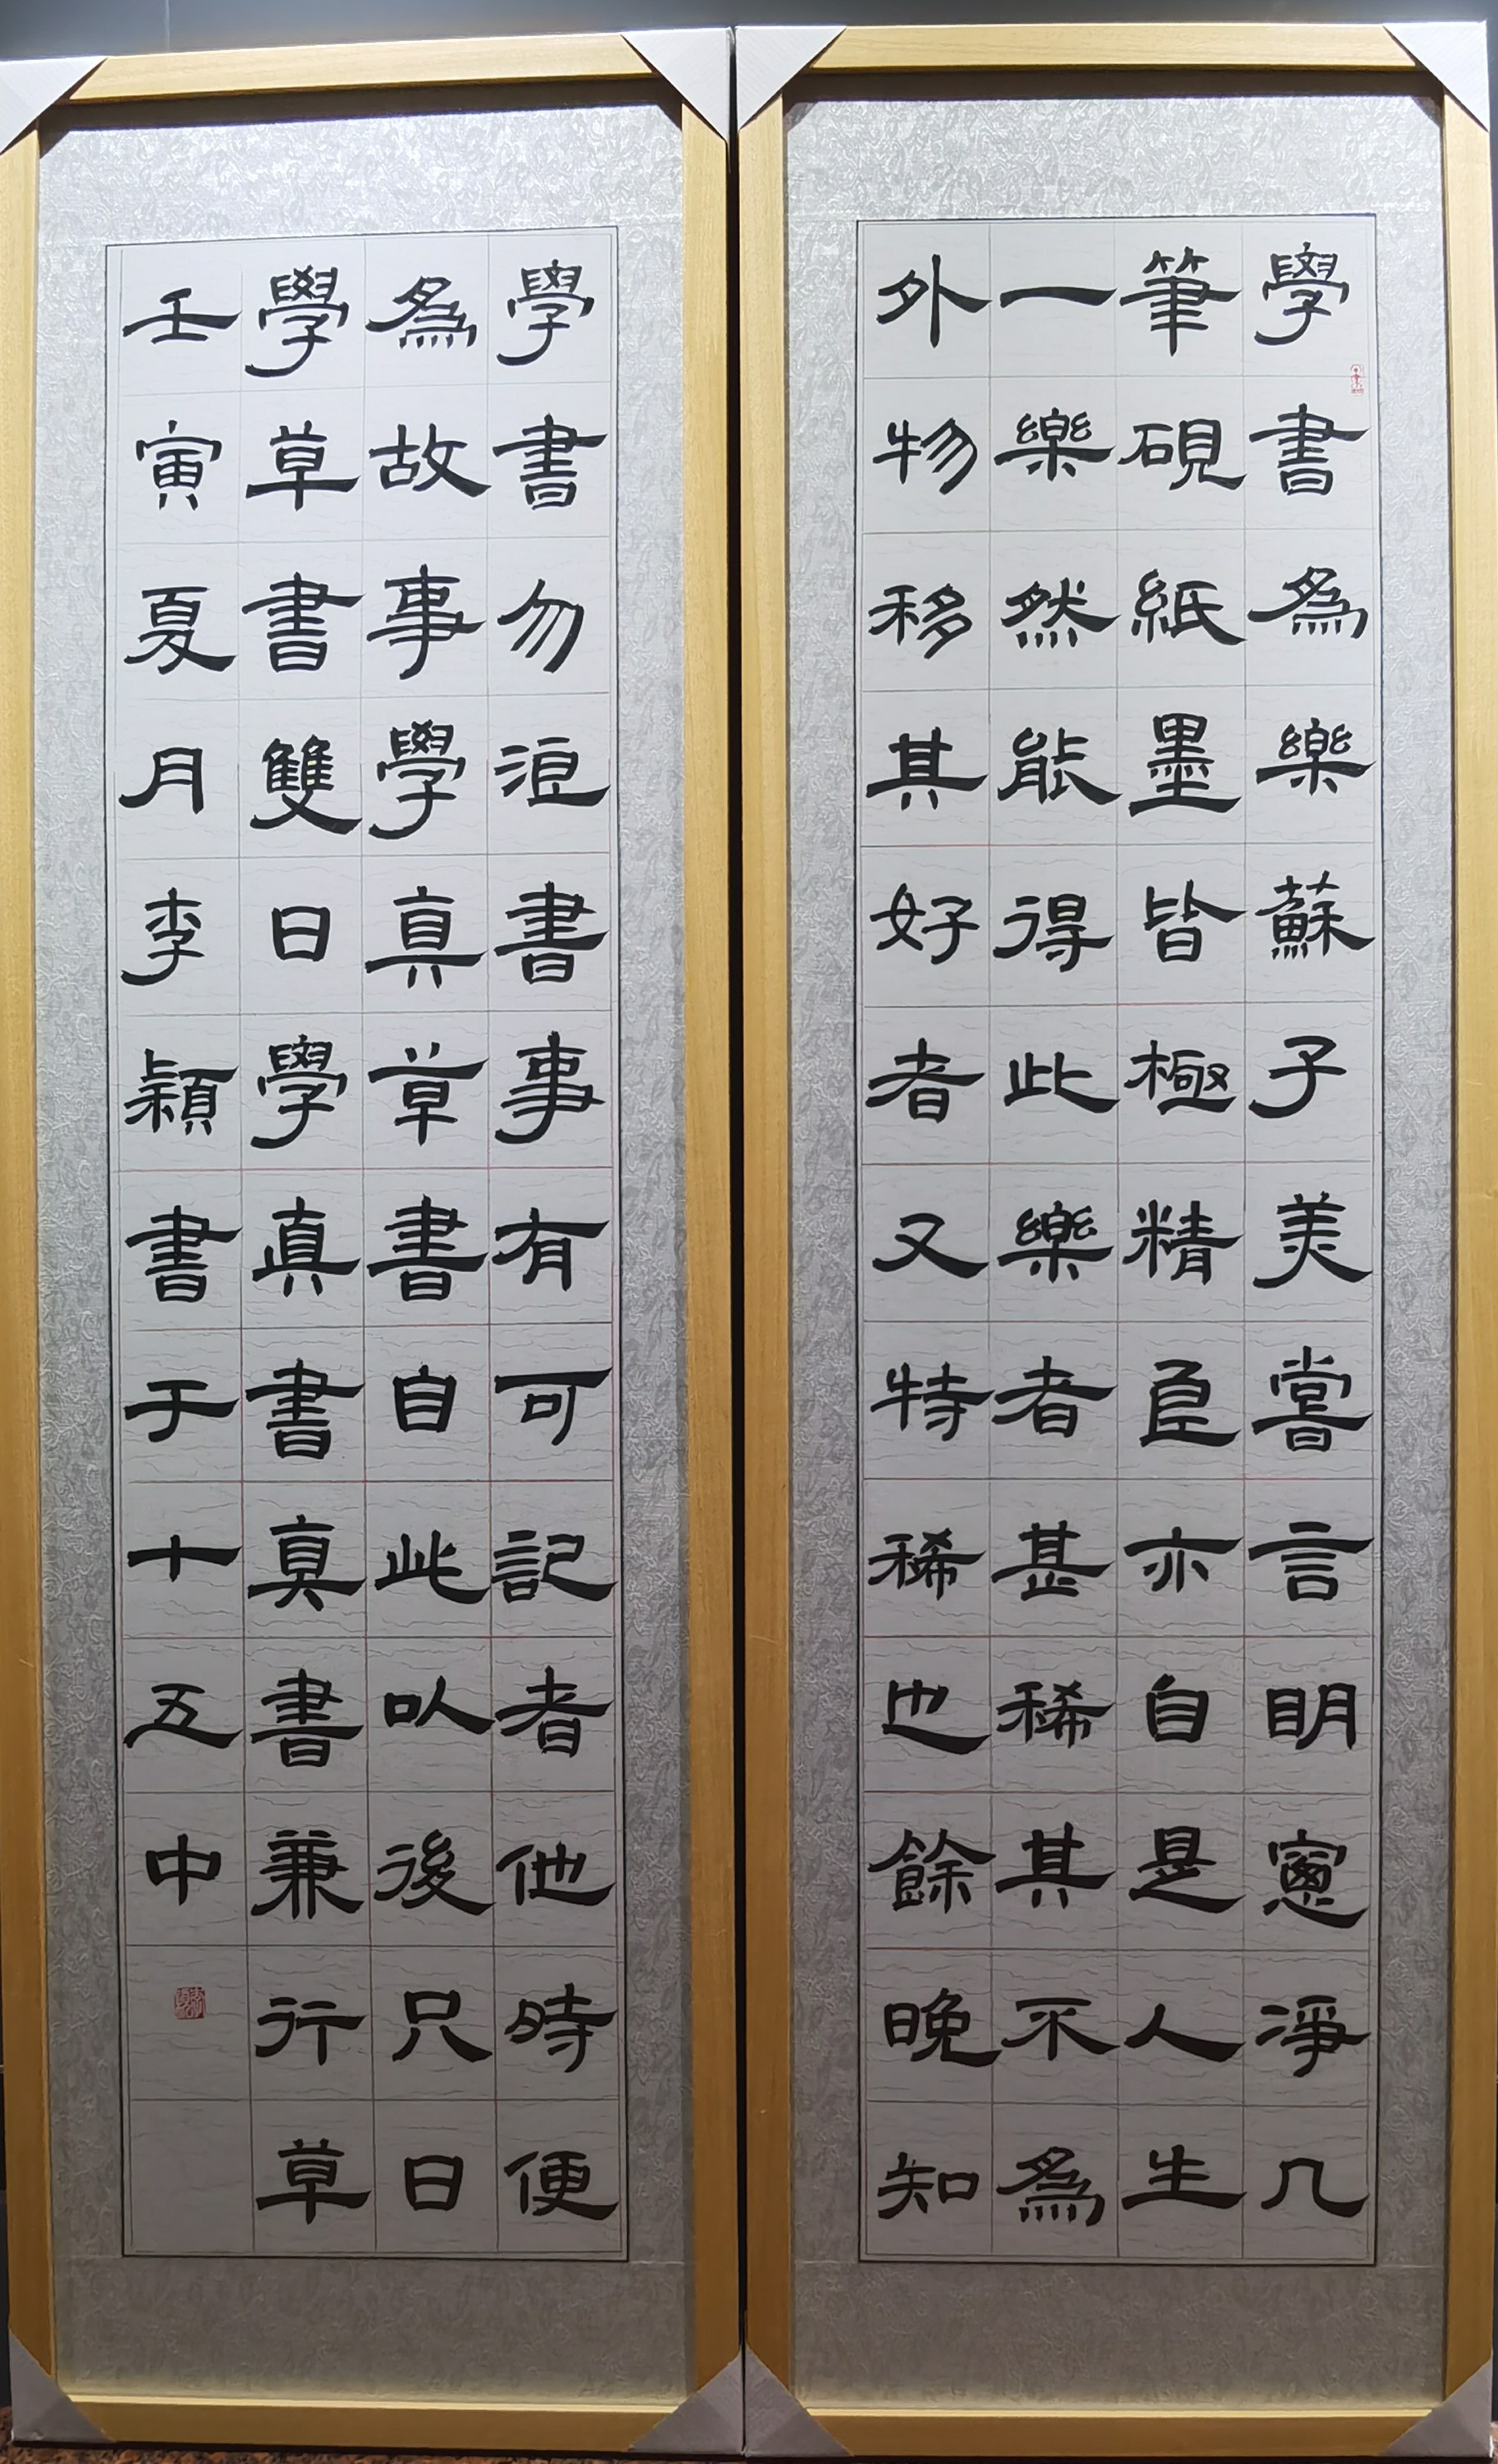 學書為樂蘇子美嘗言明窻淨几
筆硯紙墨皆極精良亦自是人生
一樂然能得此樂者甚稀其不為
外物移其好者又特稀也餘晚知
學書勿浪書事有可記者他時便
為故事學真草書自此以後只日
學草書雙日學真書真書兼行草
壬寅夏月李穎書于十五中